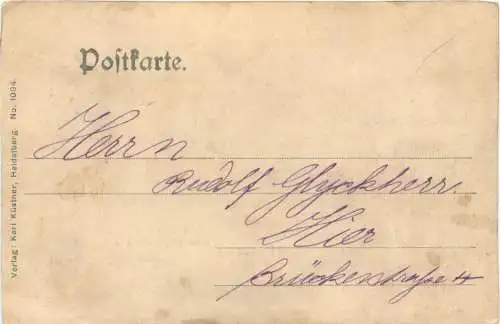 Postkarte.
Herrn
Rudolf Glyckherr
Hier
Brückenstraße 4
Verlag: Karl Küstner, Heidelberg. No. 1094.